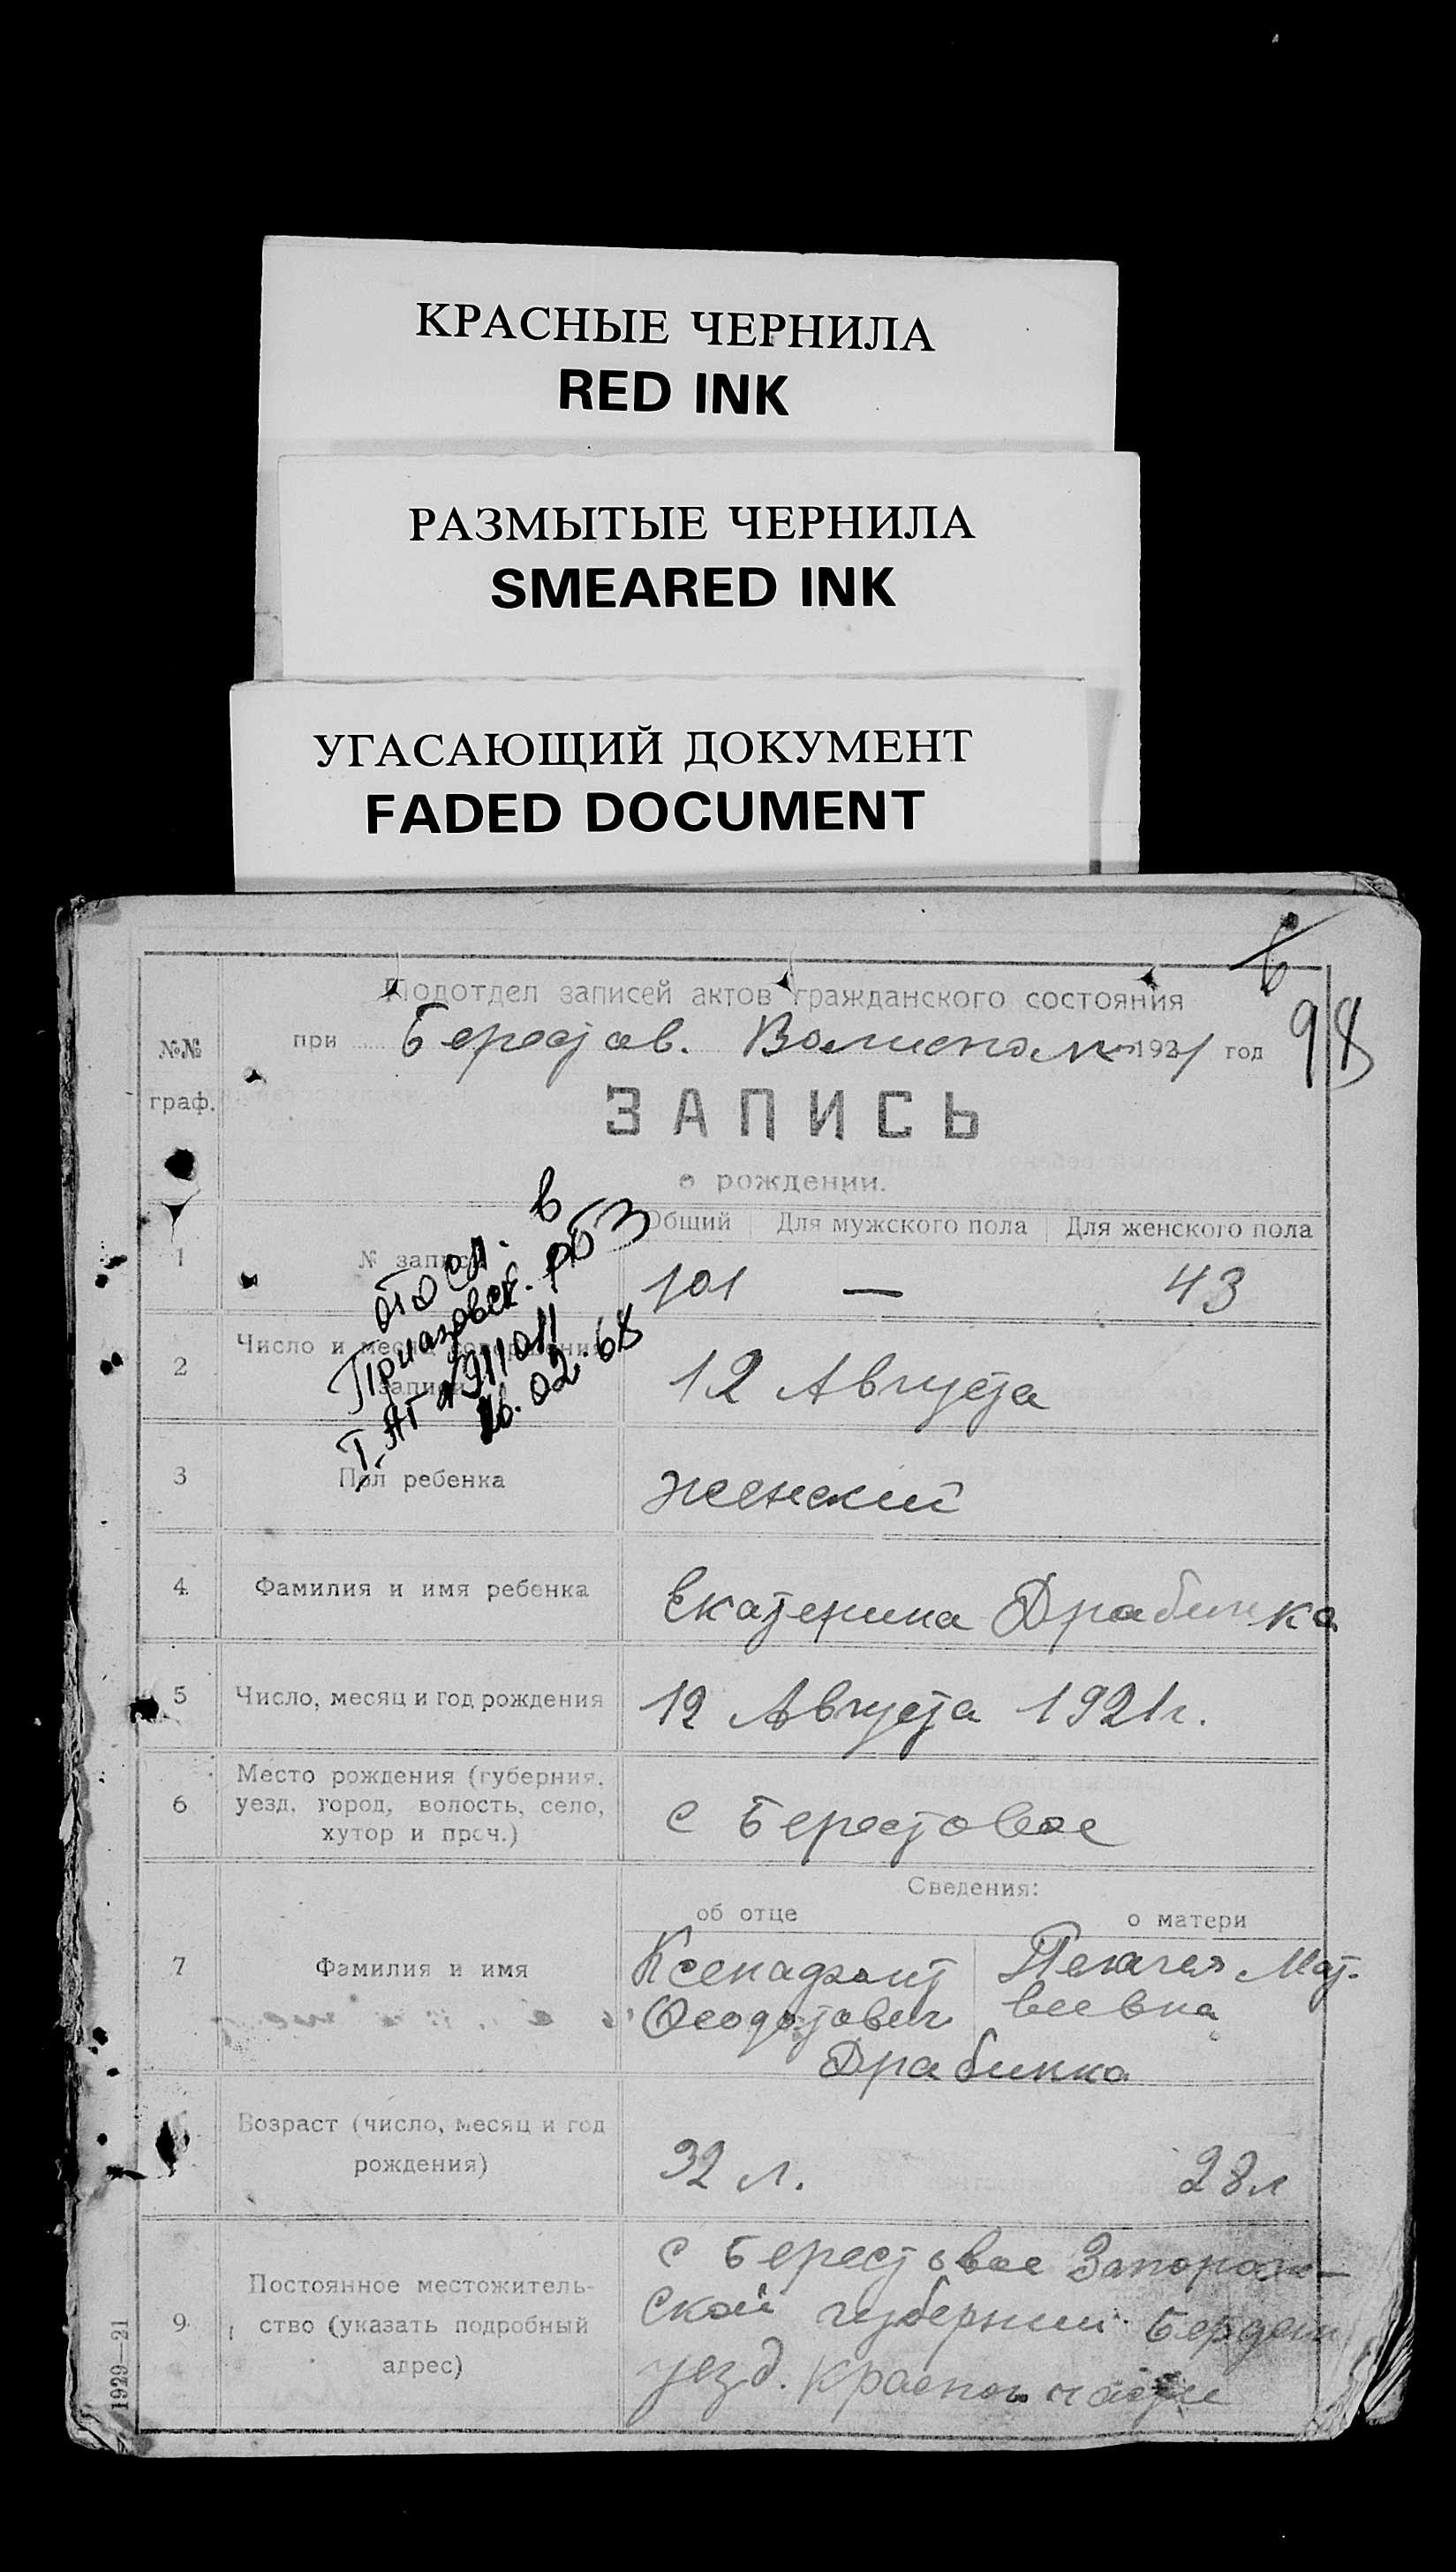 КРАСНЫЕ ЧЕРНИЛА
RED INK
РАЗМЫТЫЕ ЧЕРНИЛА
SMEARED INK
УГАСАЮЩИЙ ДОКУМЕНТ
FADED DOCUMENT
98
Подотдел записей актов гражданского состояния
при Берестов. Волисполк 1921 год
№№
граф.
ЗАПИСЬ
о рождении.
Общий Для мужского пола Для женского пола
1 № записи 101 — 43
2 Число и месяц совершения
записи 12 Августа
в
отосл.
Приазовск. РБЗ
16.02.68
3 Пол ребенка женский
4 Фамилия и имя ребенка Екатерина Драбинка
5 Число, месяц и год рождения 12 Августа 1921 г.
6 Место рождения (губерния,
уезд, город, волость, село,
хутор и проч.) с Берестовое
Сведения:
об отце о матери
7 Фамилия и имя
Ксенафонт Пелагея Мат-
Феодотович веевна
Драбинка
Возраст (число, месяц и год
рождения) 32 л. 28 л
9 Постоянное местожитель-
ство (указать подробный
адрес)
с Берестовое Запорож-
ской губернии Бердян
уезд.
1929—21